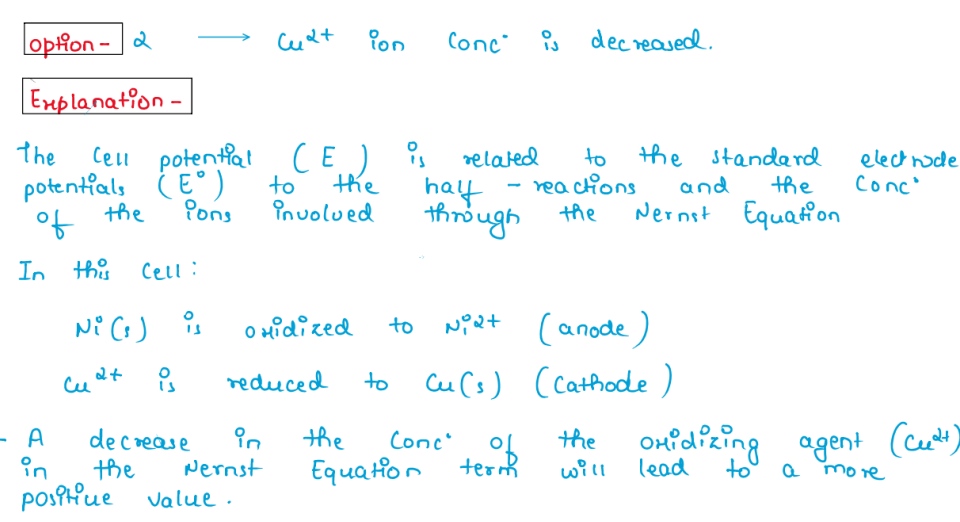 Option - 2 → Cu²⁺ ion conc· is decreased.
Explanation -
The cell potential (E) is related to the standard electrode
potentials (E°) to the half - reactions and the conc·
of the ions involved through the Nernst Equation
In this cell :
Ni(s) is oxidized to Ni²⁺ (anode)
Cu²⁺ is reduced to Cu(s) (cathode)
- A decrease in the conc· of the oxidizing agent (Cu²⁺)
in the Nernst Equation term will lead to a more
positive value .